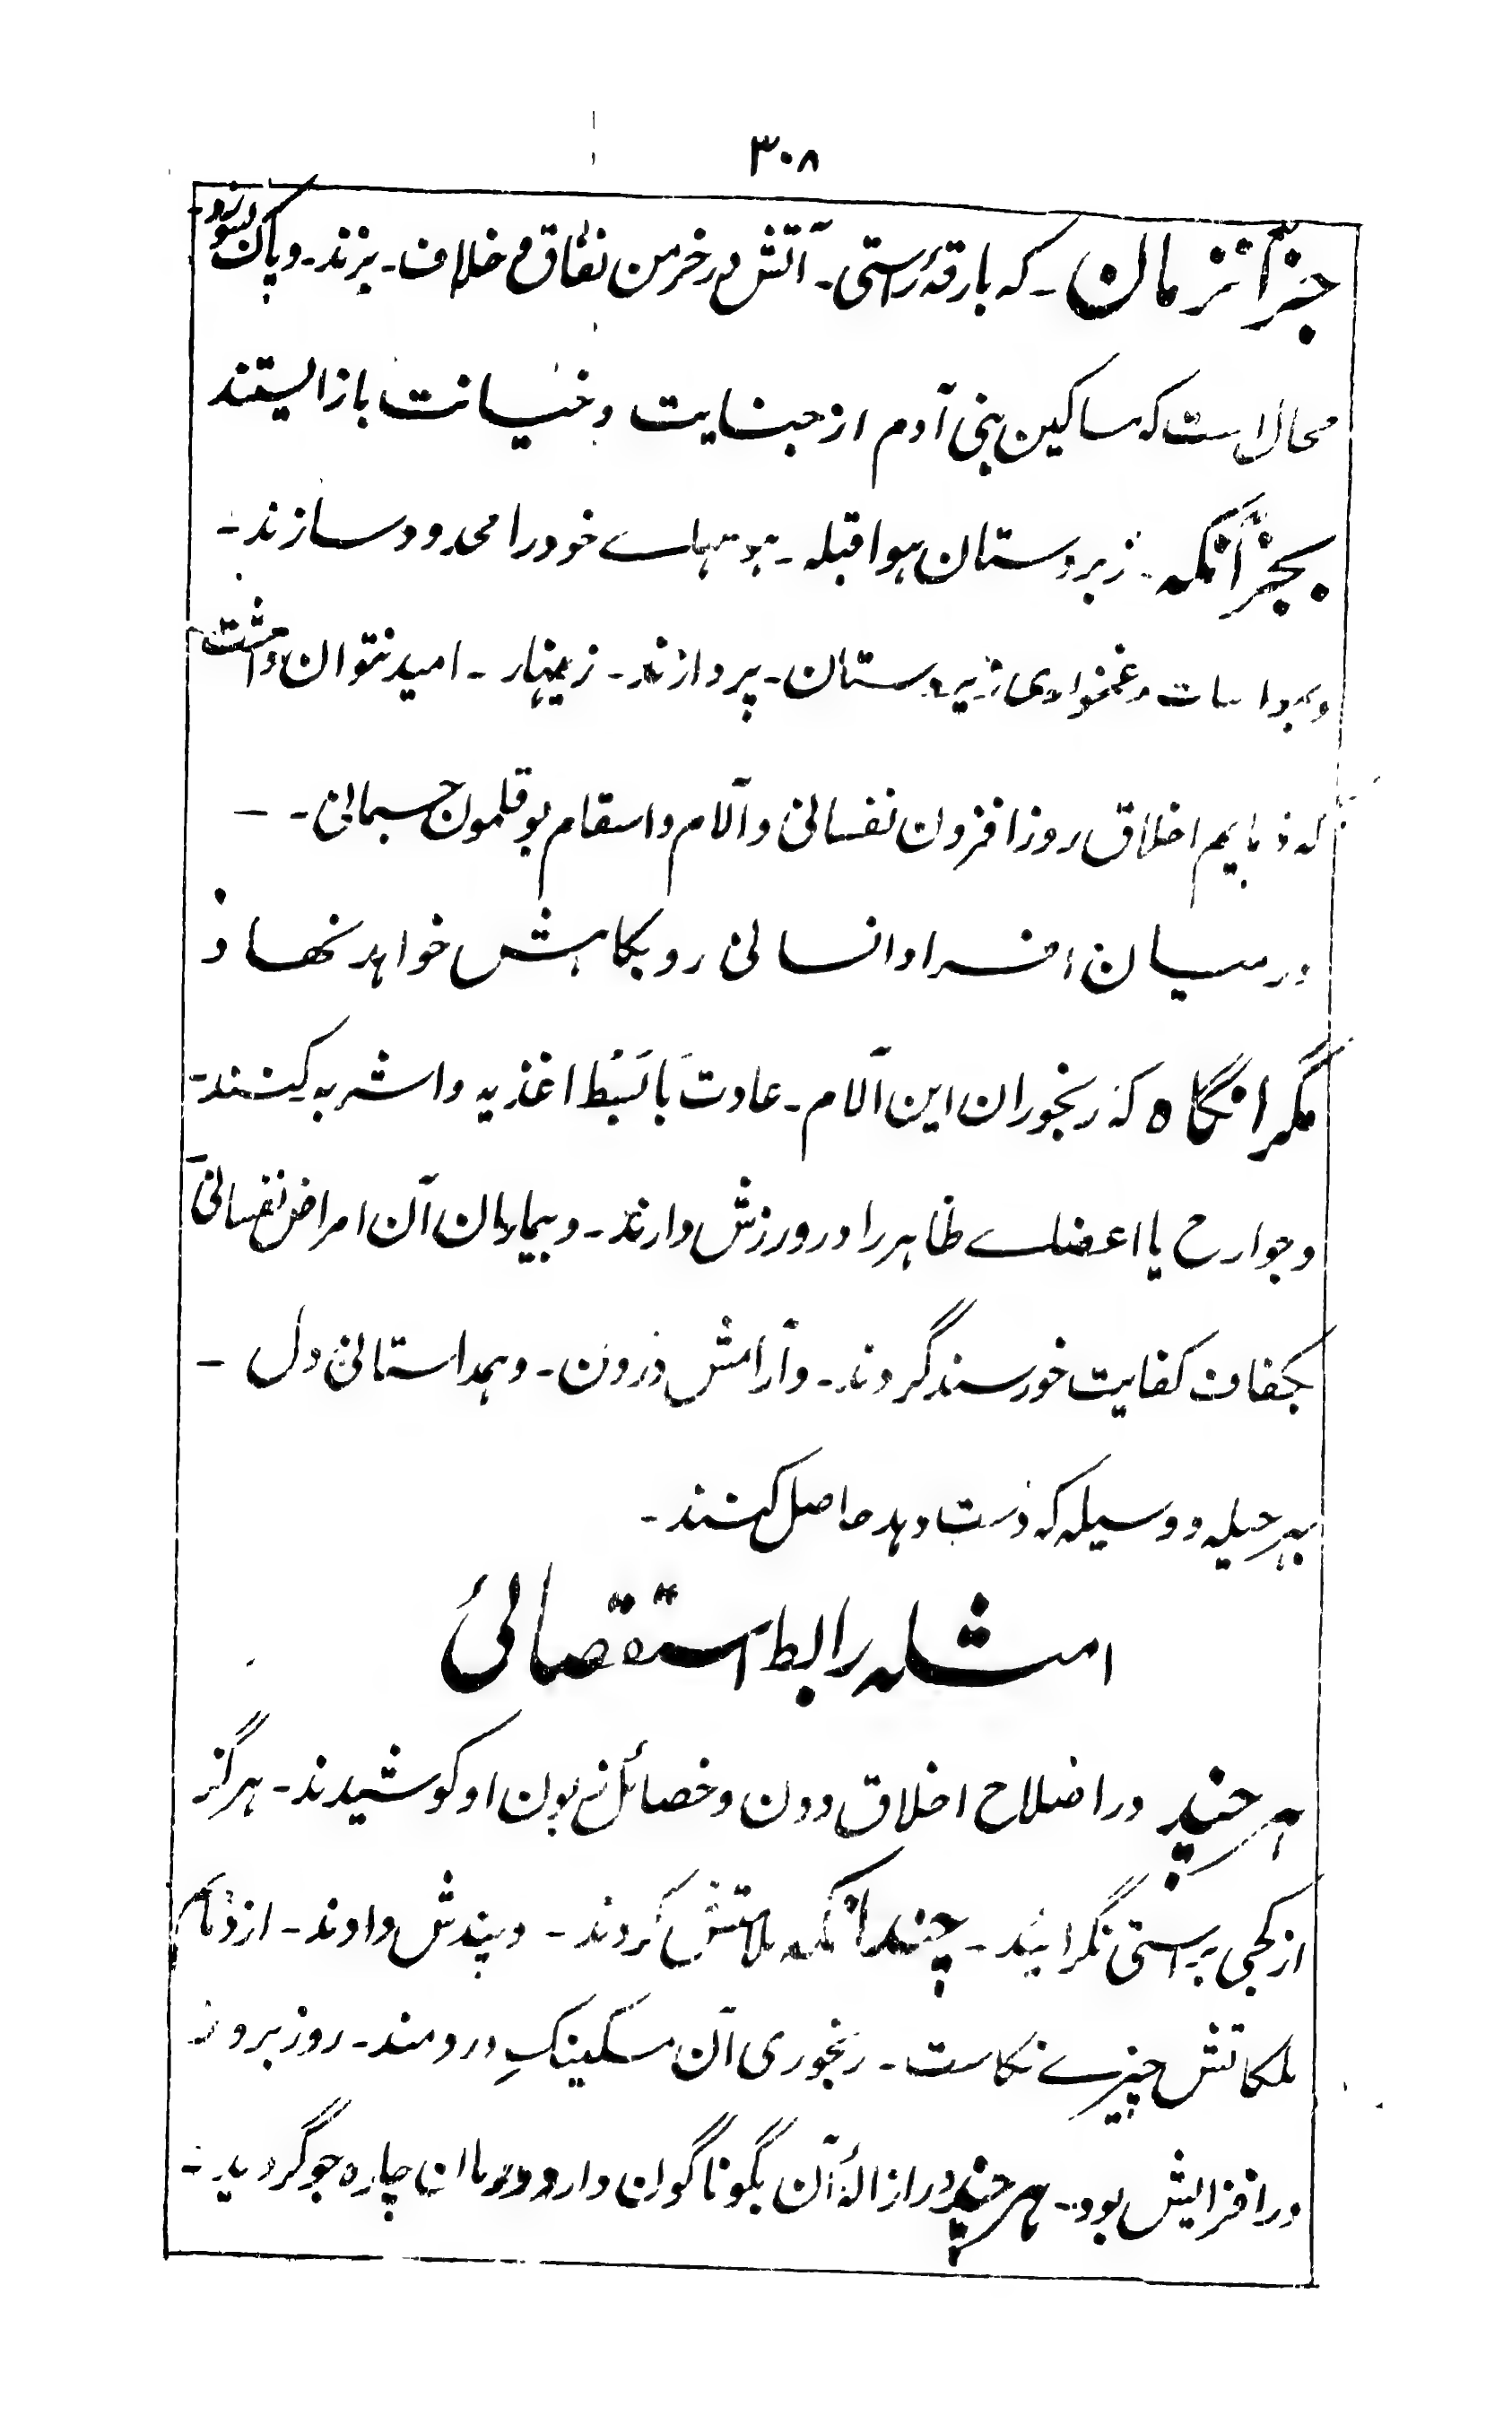 ۳۰۸
جز آنزمان ـ که بارقهٔ راستی ـ آتش در خرمن نفاق و خلاف ـ بزند ـ و پاک بسوزد ـ
محال است که مساکین بنی آدم از جنایت و خیانت باز ایستند
بجز آنکه ـ زبردستان هوا قبله ـ هوسهاے خود را محدود سازند ـ
و بمواسات و غمخواری زیردستان ـ پردازند ـ زینهار ـ امید نتوان داشت
که ذمایم اخلاق روز افزون نفسانی و آلام و اسقام بوقلمون جسمانی ـ
در میان افراد انسانی رو بکاهش خواهد نهاد
مگر انگاه که رنجوران این آلام ـ عادت بابسط اغذیه و اشربه کنند ـ
و جوارح یا اعضاے ظاهر را در ورزش دارند ـ و بیماران آن امراض نفسانی
بکفاف کفایت خورسند گردند ـ و آرامش درون ـ و همداستانی دل ـ
بهر حیله و وسیله که دست دهد حاصل کنند ـ
امثله رابط استقصائی
هر چند در اصلاح اخلاق دون و خصائل زبون او کوشیدند ـ هرگز
از کجی براستی نگرائید ـ چندانکه ملامتش کردند ـ و پندش دادند ـ از ذمائم
ملکاتش چیزے نکاست ـ رنجوری آن مسکینکِ دردمند ـ روز بروز
در افزایش بود ـ هر چند در ازالهٔ آن بگوناگون دارو و درمان چاره جو گردید ـ